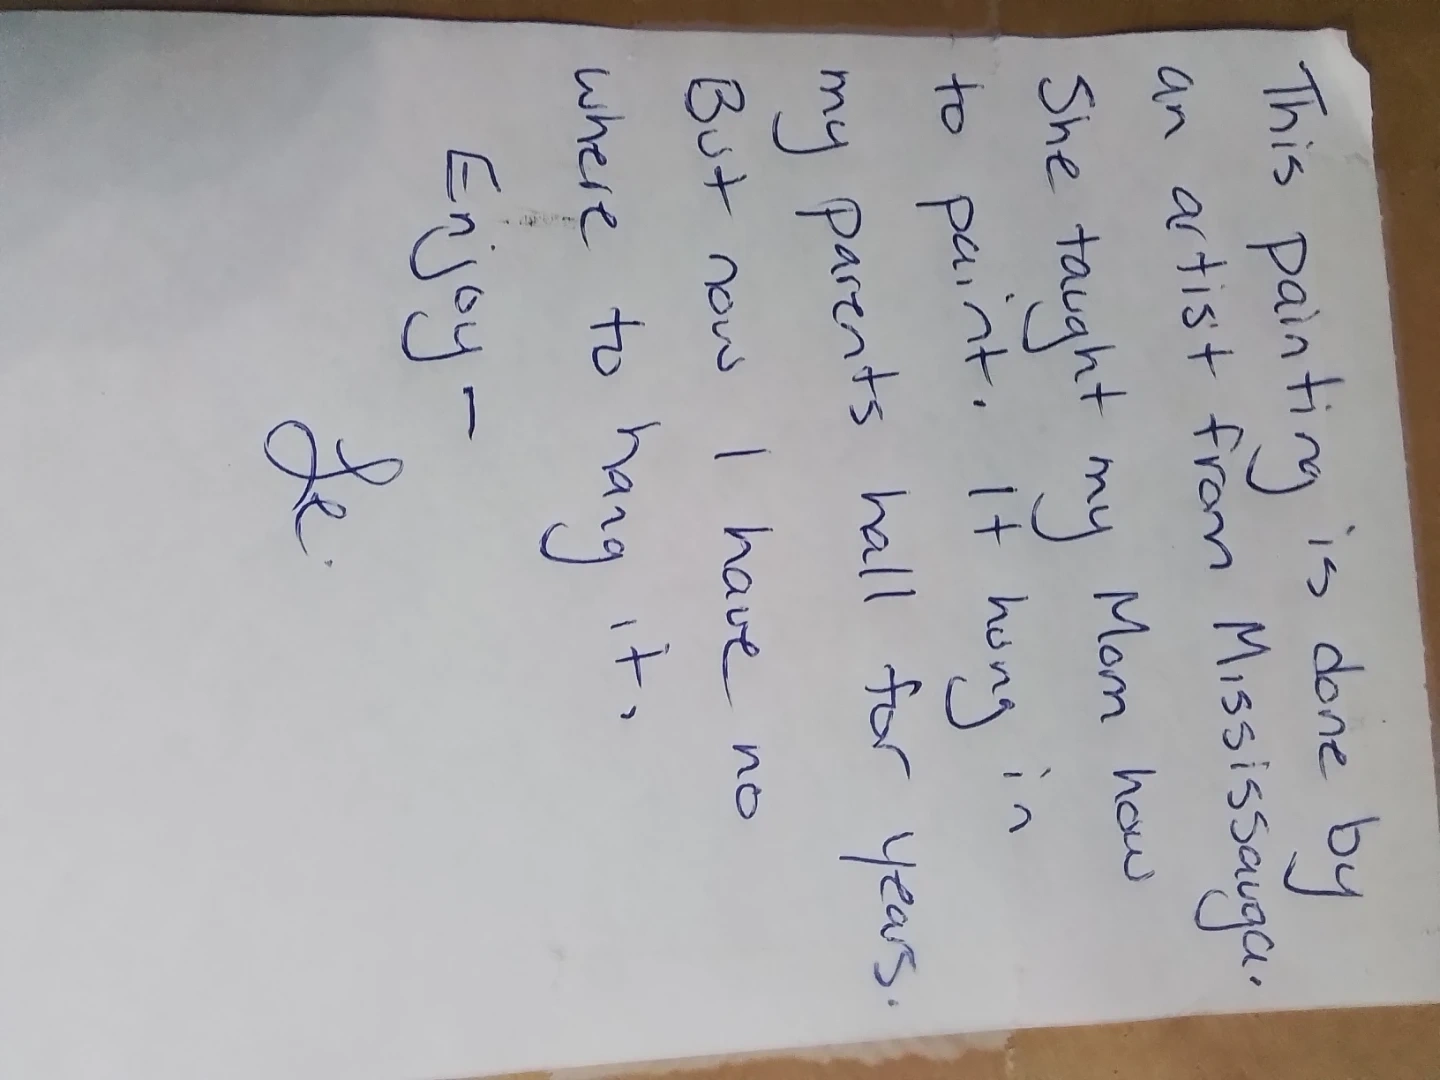 This painting is done by
an artist from Mississauga.
She taught my Mom how
to paint. It hung in
my parents hall for years.
But now I have no
where to hang it.
Enjoy -